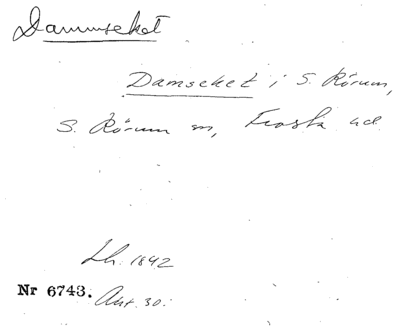 Dammseket
Damseket i S. Rörum,
S. Rörum sn, Frosta hd
Lh. 1842
Nr 6743. Akt. 30.